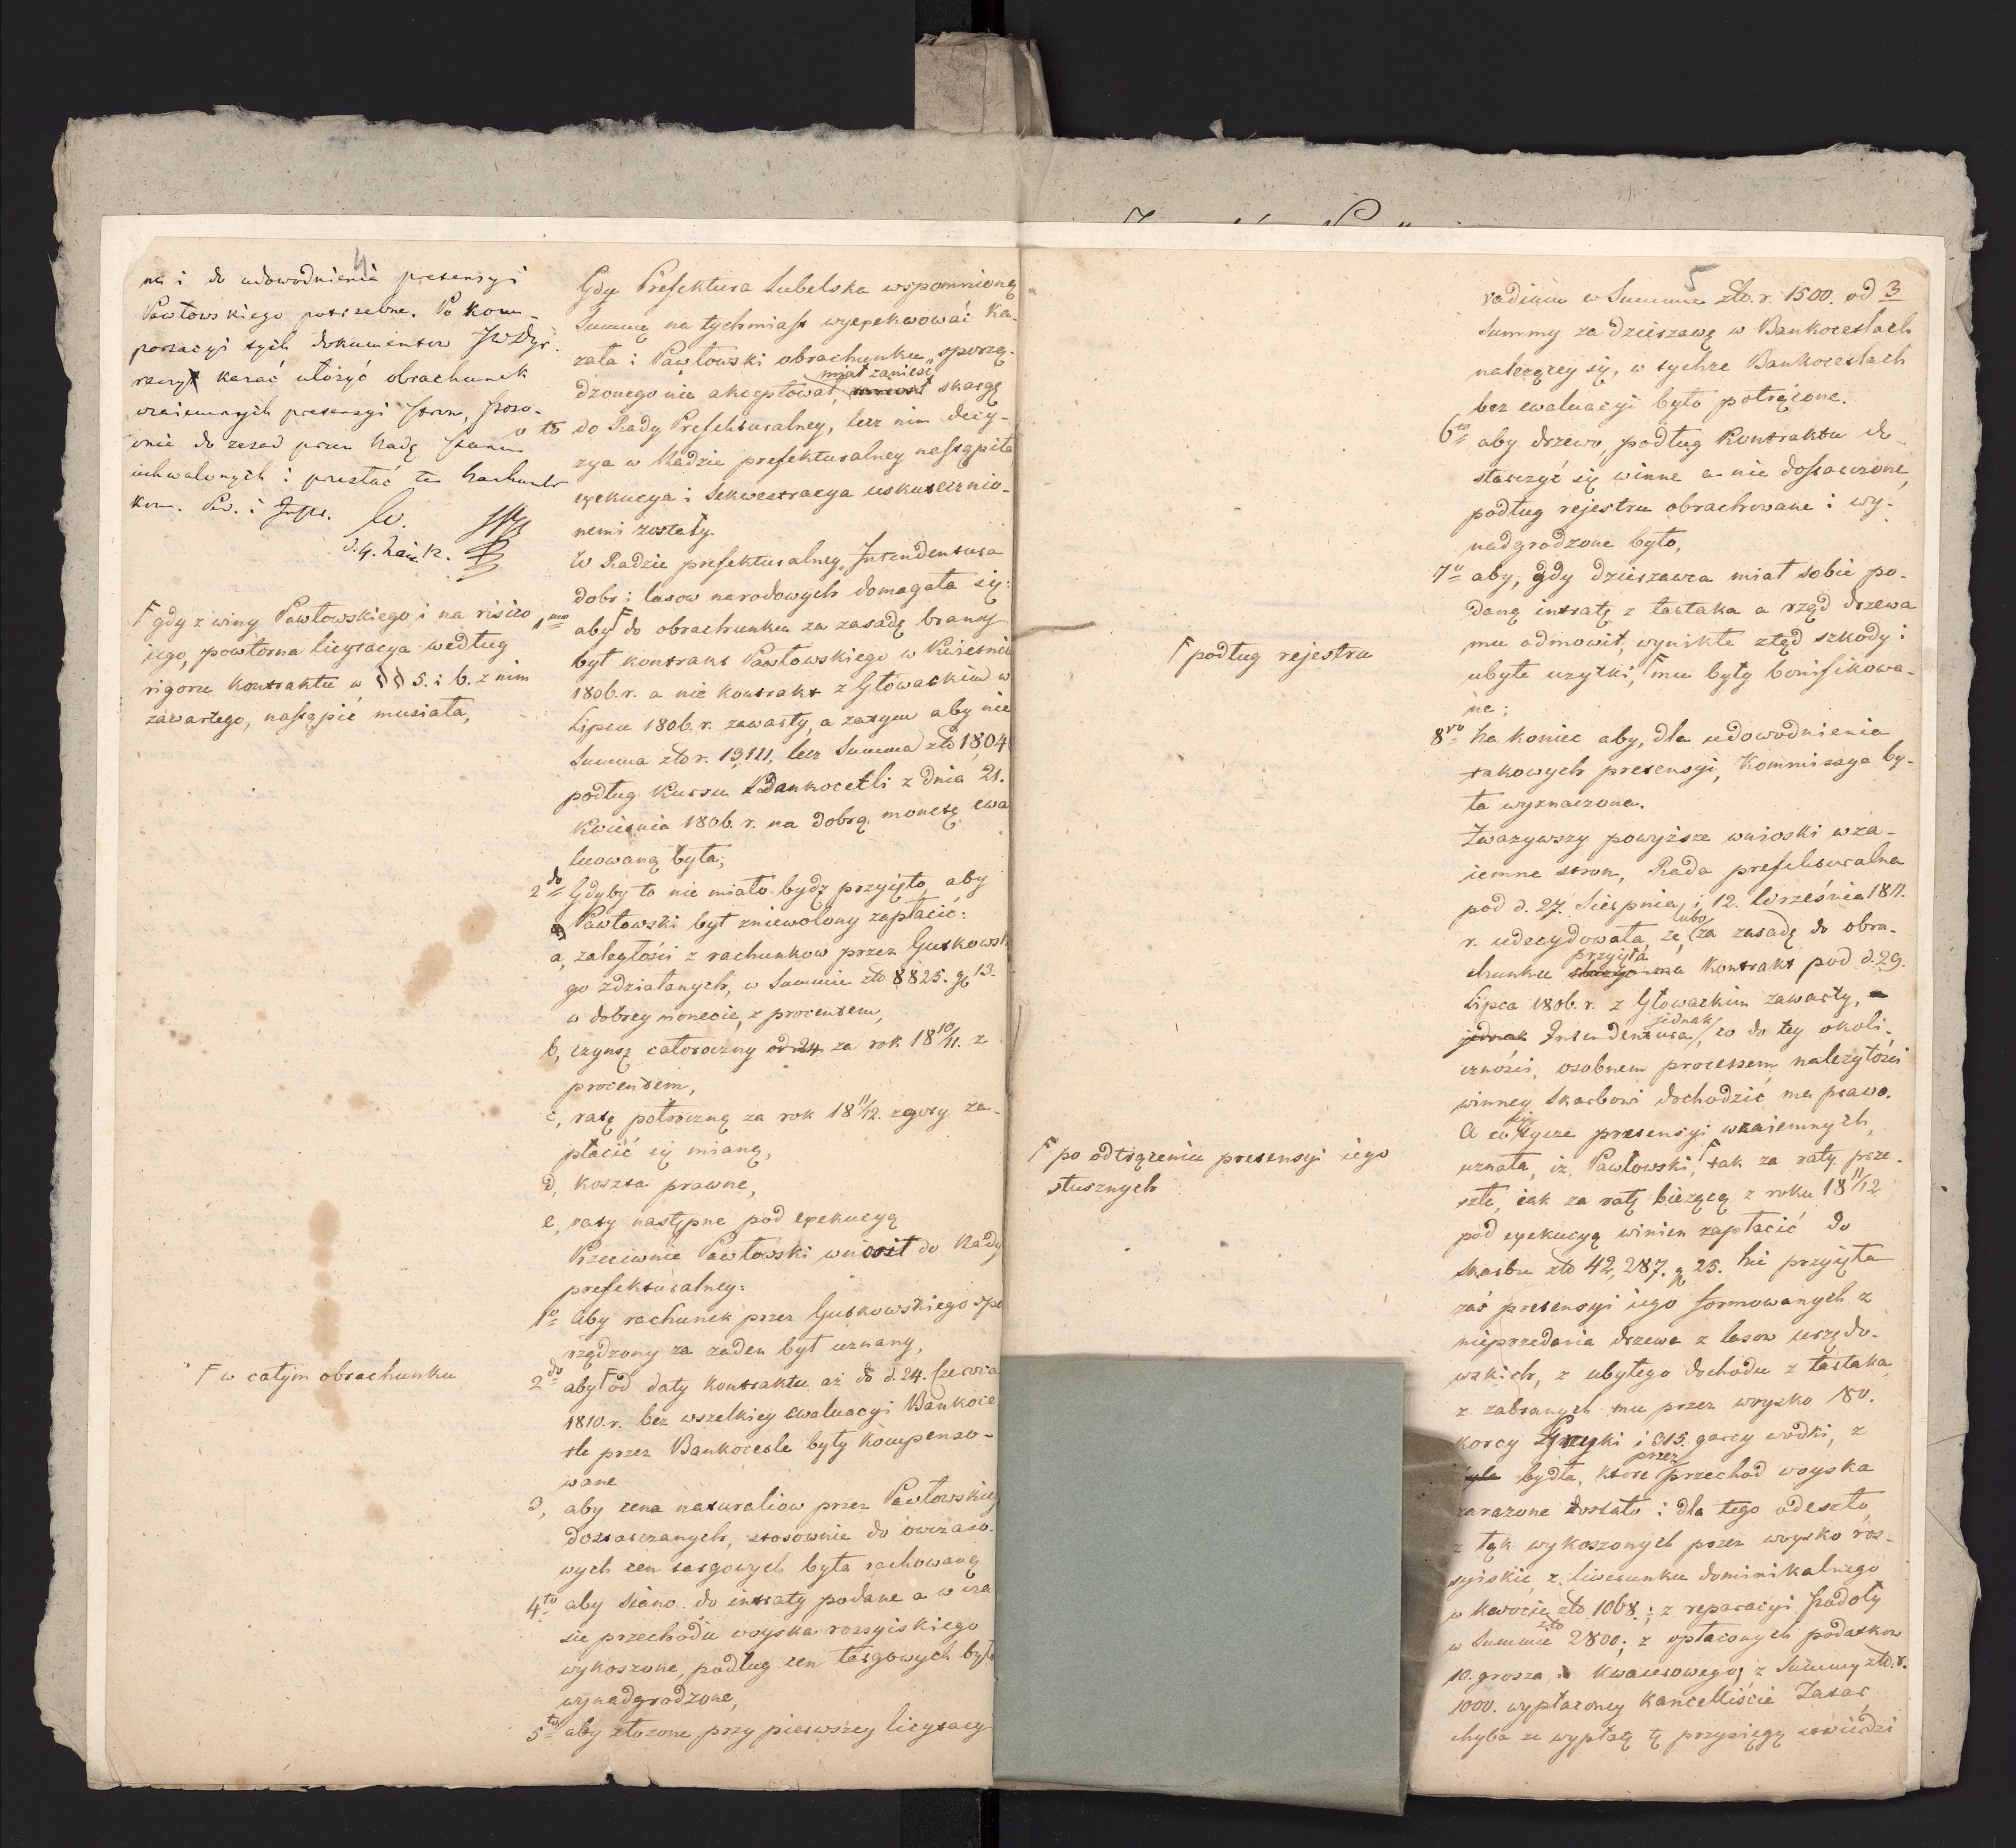 4
na i do udowodnienia pretensyi
Pawłowskiego potrzebne. Po kom-
portacyi tych dokumentow JWDyr.
raczy kazać ułożyć obrachunek
wzaiemnych pretensyi stron, stoso-
wnie do zasad przez Radę Stanu
uchwalonych i przesłać ten Rachunek
F gdy z winy Pawłowskiego i na risico
iego, powtorna licytacya według
rigoru kontraktu w §§ 5. i 6. z nim
zawartego, nastąpić musiała,
F w całym obrachunku
Gdy Prefektura Lubelska wspomnioną
Summę natychmiast wyexekwować ka-
zała i Pawłowski obrachunku sporzą-
miał zanieść
dzonego nie akceptował, skargę
do Rady Prefekturalney, lecz nim decy-
zya w Radzie prefekturalney nastąpiła
exekucya i Sekwestracya uskutecznio-
nemi zostały.
W Radzie prefekturalney Intendentura
dobr i lasow narodowych domagała się:
1mo aby F do obrachunku za zasadę brany
był kontrakt Pawłowskiego w Kwietniu
1806. r. a nie kontrakt z Głowackim w
Lipcu 1806. r. zawarty, a zatym aby nie
Summa złt r. 13,111, lecz Summa złt 1,804
podług kursu Bankocetli z dnia 21.
Kwietnia 1806. r. na dobrą monetę ewa
luowaną była;
2do Gdyby to nie miało bydź przyięto, aby
Pawłowski był zniewolony zapłacić:
a, zaległości z rachunkow przez Gutkowskie
go zdziałanych, w Summie złt 8825. gr 13.
w dobrey monecie, z procentem,
b, czynsz całoroczny od 24 za rok 18 10/11. z
procentem,
c, ratę połroczną za rok 18 11/12. zgory za-
płacić się mianą,
d, koszta prawne,
e, raty następne pod exekucyą
Przeciwnie Pawłowski wniosił do Rady
prefekturalney:
1o aby rachunek przez Gutkowskiego spo
rządzony za żaden był uznany,
2do aby F od daty kontraktu aż do d. 24. Czerwca
1810. r. bez wszelkiey ewaluacyi Bankoce
tle przez Bankocetle były kompenso-
wane
3, aby cena naturaliow przez Pawłowskieg
dostarczanych, stosownie do owczaso-
wych cen targowych była rachowaną
4to aby siano do intraty podane a w cza
sie przechodu woyska rossyiskiego
wykoszone, podług cen targowych było
wynadgrodzone,
5to aby złożone przy pierwszey licytacy
5
3
F podług rejestru
F po odtrąceniu pretensyi iego
słusznych
vadium w Summie Złt. r. 1500. od
Summy za dzierzawę w Bankocetlach
należącey się, w tychże Bankocetlach
bez ewaluacyi było potrącone.
6to aby drzewo, podług kontraktu do-
starczyć się winne a nie dostarczone,
podług rejestru obrachowane i wy-
nadgrodzone było,
7o aby, gdy dzierzawca miał sobie po-
daną intratę z tartaka a rząd drzewa
mu odmowił, wynikłe ztąd szkody i
ubyłe użytki, F mu były bonifikowa-
ne;
8vo Na koniec aby, dla udowodnienia
takowych pretensyi, Kommissya by-
ła wyznaczona.
Zważywszy powyższe wnioski wza-
iemne stron, Rada prefekturalna
pod d. 27. Sierpnia i 12. Września 1811.
lubo
r. udecydowała, że, za zasadę do obra-
przyięła
chunku kontrakt pod d. 29.
Lipca 1806. r. z Głowackim zawarty,
jednak
jednak Intendentura, co do tey okoli-
czności, osobnem processem, należytości
winney Skarbowi dochodzić ma prawo.
się
A co tycze pretensyi wzaiemnych,
uznała, iż Pawłowski, F tak za raty prze-
szłe, iak za ratę bieżącą z roku 18 11/12
pod exekucyą winien zapłacić do
Skarbu złt 42,287. gr 25. Nie przyięła
zaś pretensyi iego formowanych z
nieprzedania drzewa z lasow urzędo-
wskich, z ubyłego dochodu z tartaka,
z zabranych mu przez woysko 80.
korcy Gryki i 315. garcy wodki, z
przez
bydła, ktore przechod woyska
zarażone zostało i dla tego odeszło,
z łąk wykoszonych przez woysko ros-
syiskie, z liwerunku dominikalnego
w kwocie złt 1068.; z reparacyi Stodoły
złt
w Summie 2800; z opłaconych podatkow
10. grosza, i kwaterowego; z Summy złt. r.
1000. wypłaconey Kancelliście Zatac,
chyba że wypłatę tę przysięgą stwierdzi